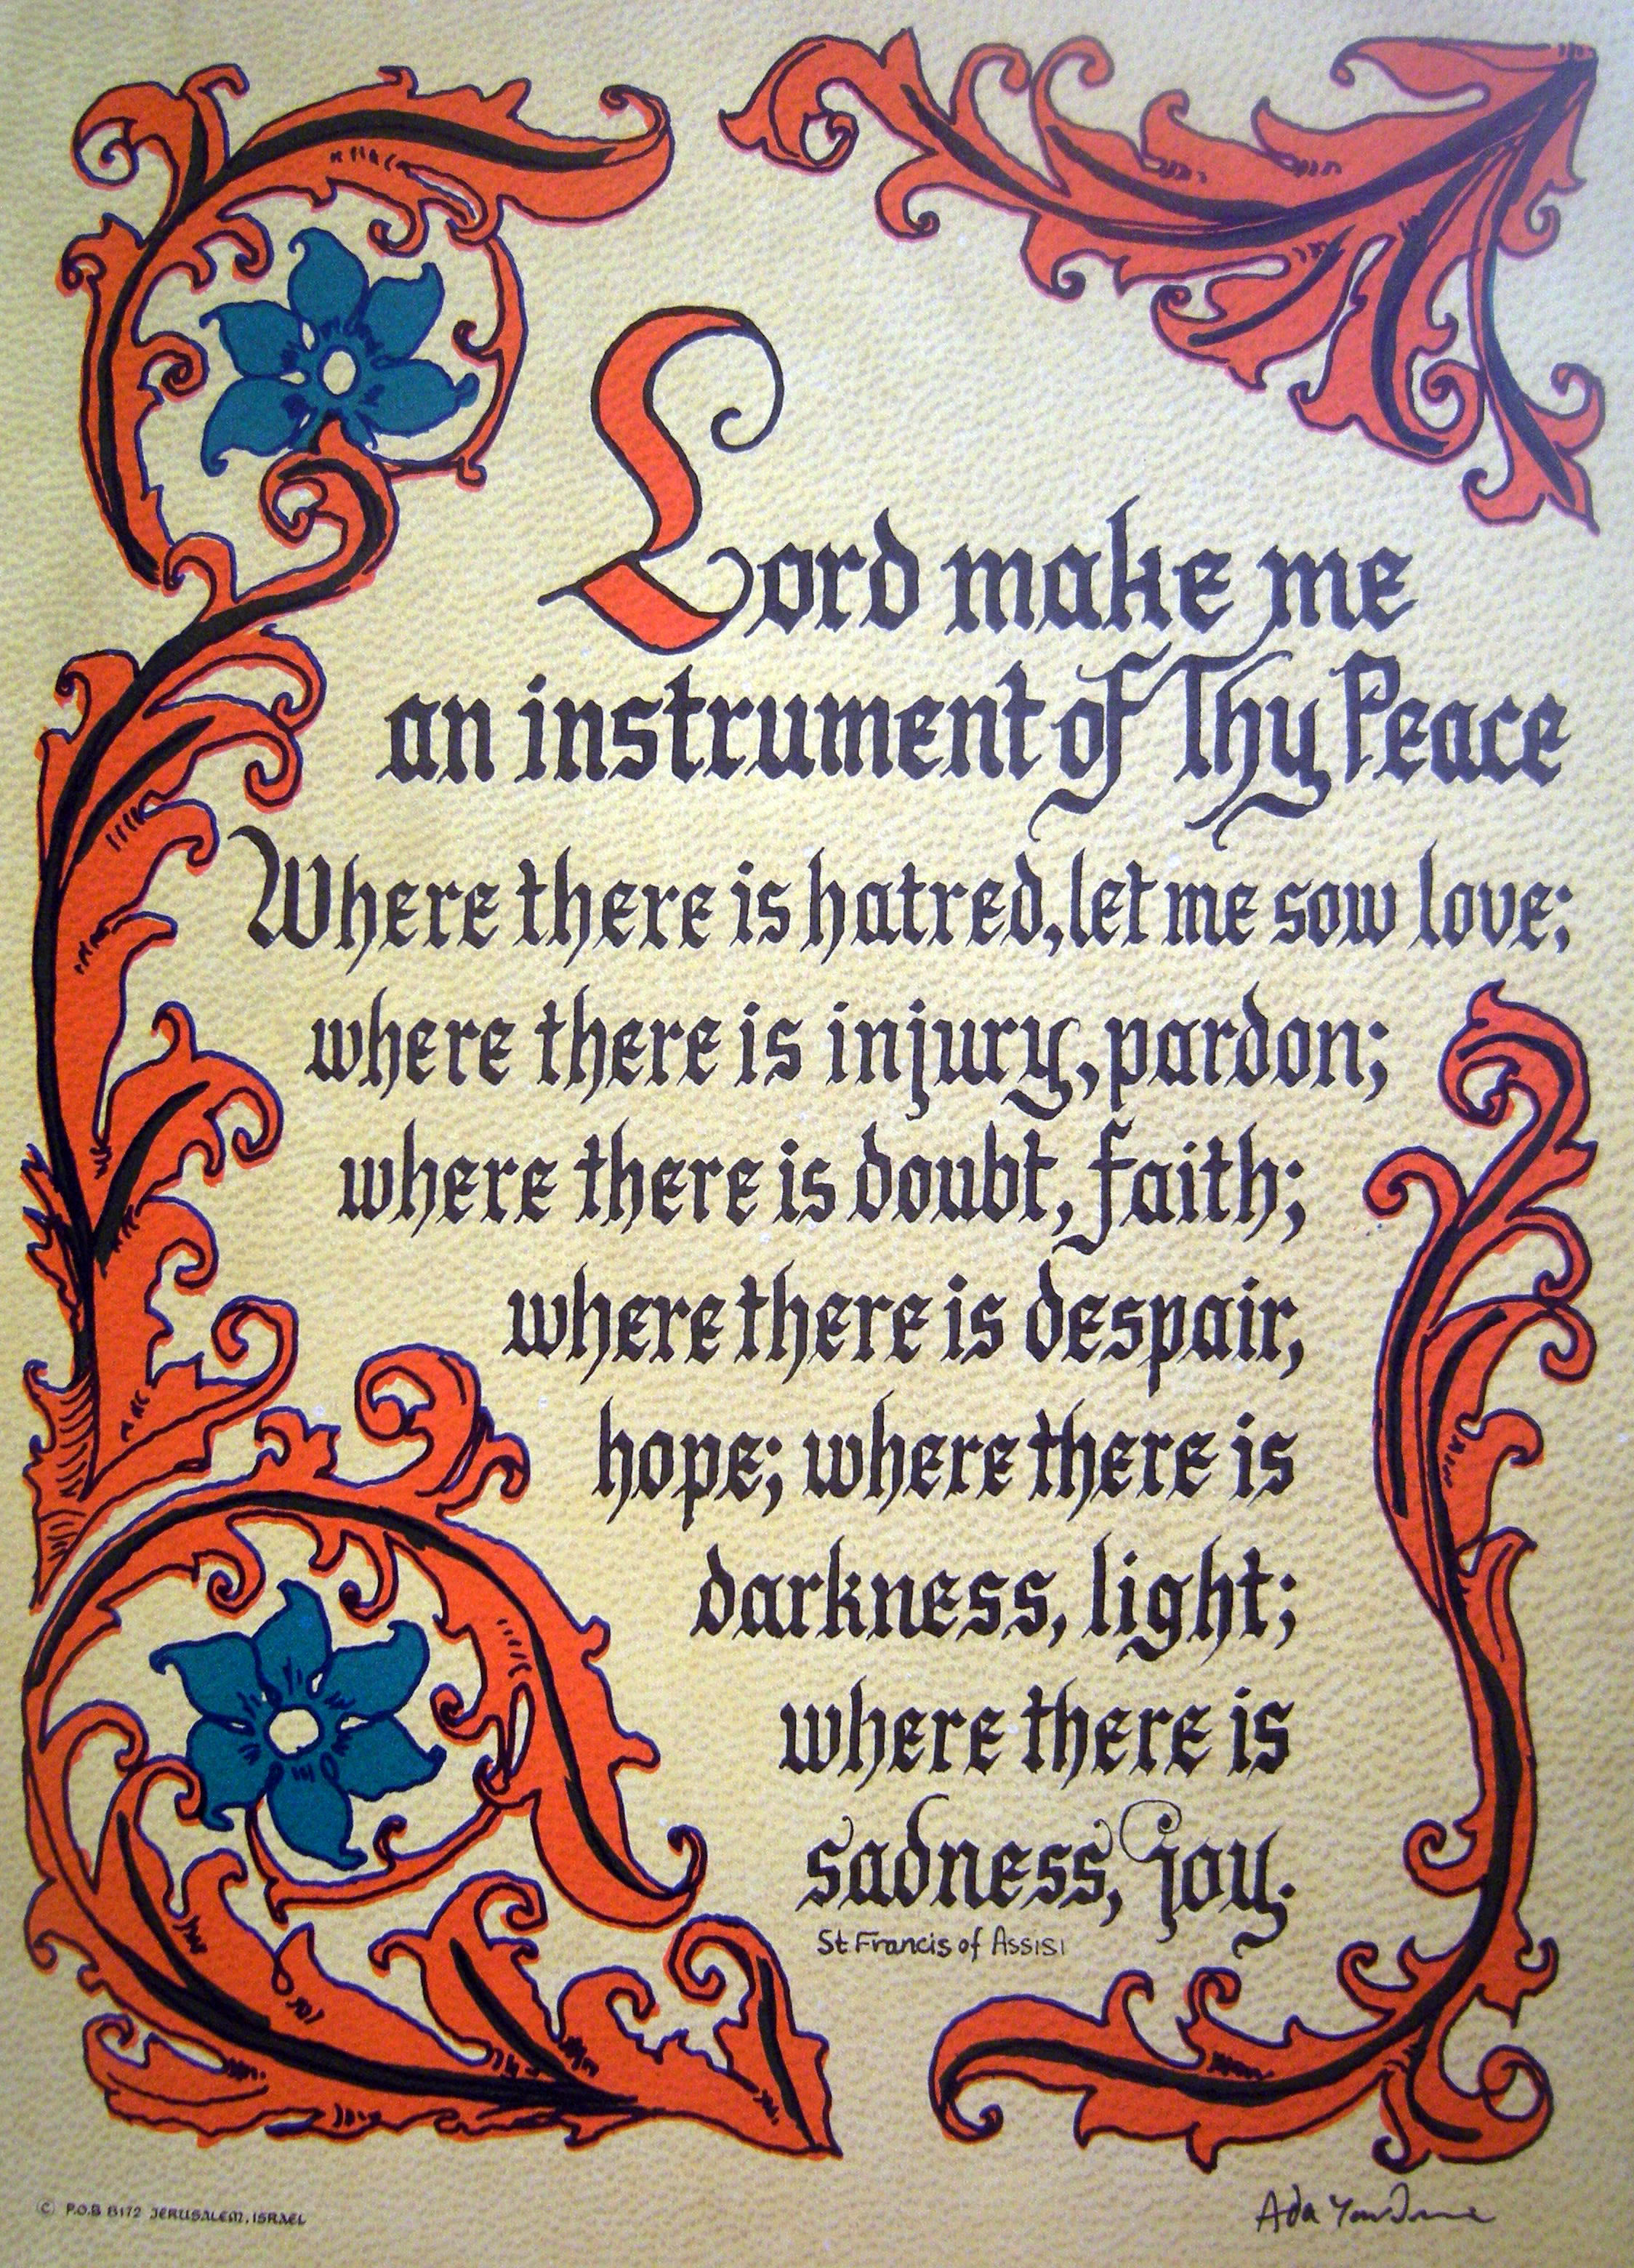 Lord make me
an instrument of Thy Peace
Where there is hatred, let me sow love;
where there is injury, pardon;
where there is doubt, faith;
where there is despair,
hope; where there is
darkness, light;
where there is
sadness, joy.
St. Francis of Assisi
© P.O.B 8172 JERUSALEM, ISRAEL
Ada